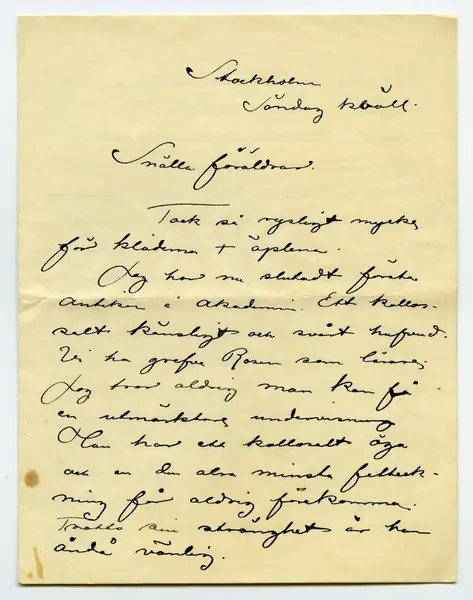 Stockholm
Söndag kväll.
Snälla föräldrar.
Tack så rysligt mycke
för kläderna + äplena.
Jag har nu slutadt första
Antiken i Akademin. Ett kollos-
salt känsligt och svårt hufvud.
Vi ha grefve Rosen som lärare,
Jag tror aldrig man kan få
en utmärktare undervisning
Han har ett kollosalt öga
och en den alra minsta felteck-
ning får aldrig förekomma.
Trotts sin stränghet är han
ändå vänlig.